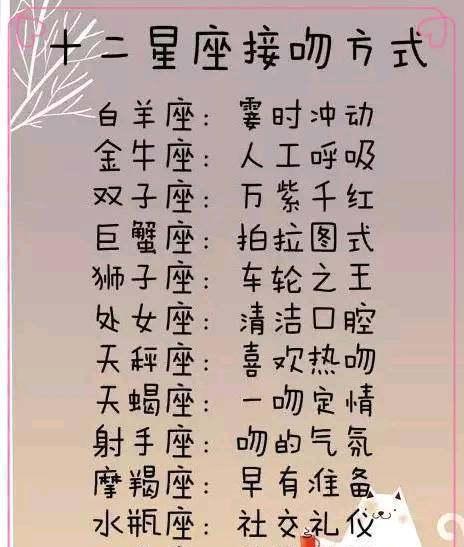 十二星座接吻方式
白羊座：霎时冲动
金牛座：人工呼吸
双子座：万紫千红
巨蟹座：拍拉图式
狮子座：车轮之王
处女座：清洁口腔
天秤座：喜欢热吻
天蝎座：一吻定情
射手座：吻的气氛
摩羯座：早有准备
水瓶座：社交礼仪